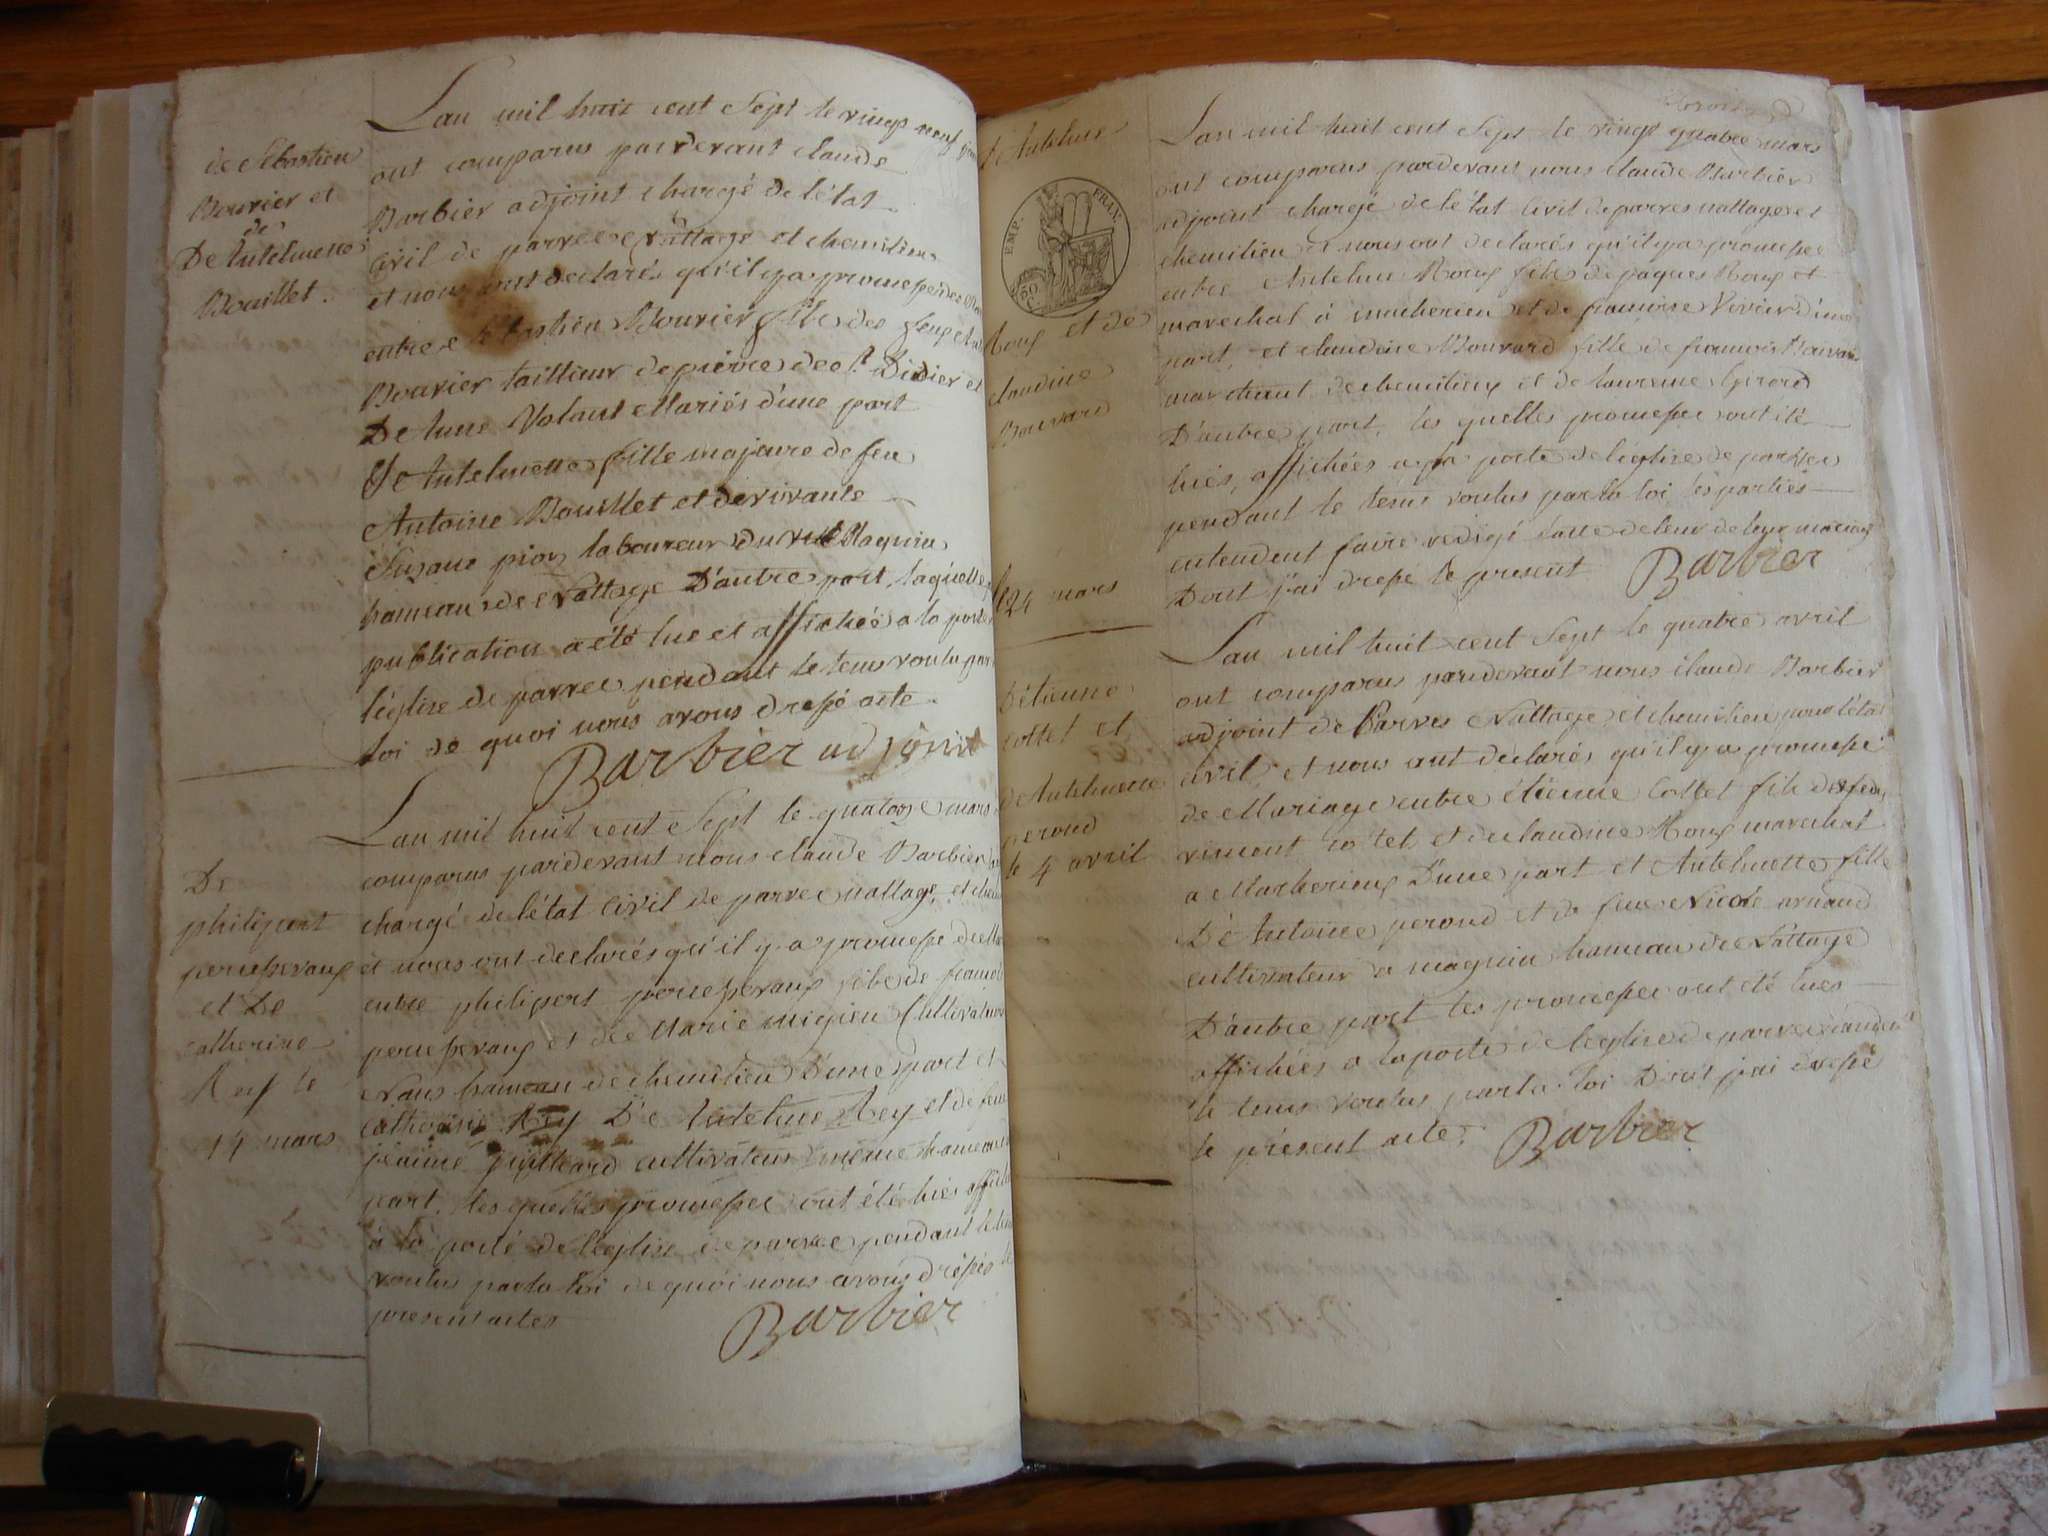 de Sébastien
Bouvier et
de
De Antelmette
Bouillet.
Lan mil huit cent Sept le vingt neuf
ont comparus pardevant claude
Barbier adjoint chargé de l'état
Civil de parves Nattage et chemilieu
et nous ont declarés qu'il y a promesse de
entre Sebastien Bouvier fils des feux
Bouvier tailleur de pierre de St Didier et
De Anne Volant Mariés d'une part
Et Antelmette fille majeure de feu
Antoine Bouillet et de vivante
Suzane pion laboureur du Magnin
hameau de Nattage D'autre part, laquelle
publication a été lue et affichée a la porte
l'église de parves pendant le tems voulu par
loi de quoi nous avons dressé acte.
Barbier adjoint
De
philipert
et De
catherine
Rey le
14 mars
Lan mil huit cent Sept le quatorze mars
comparus pardevant nous claude Barbier
chargé de l'état Civil de parves nattage, et
et nous ont declarés qu'il y a promesse de
entre philipert fils de
et de Marie migieu Cultivateur
Nans hameau de chemilieu D'une part et
catherine Rey De Antelme Rey et de feue
cultivateur même hameau
part, les quelles promesses ont été lues
à la porte de l'eglise de parves pendant le
voulus par la loi de quoi nous avons dressés le
present actes
Barbier
d'Antelme
EMP. FRAN.
50 C.
Roux et de
claudine
Bouvard
le 24 mars
Lan mil huit cent Sept le vingt quatre mars
ont comparus pardevant nous claude Barbier
adjoint chargé de l'état Civil de parves nattage et
chemilieu et nous ont declarés qu'il y a promesse
entre Antelme Roux fils de jaques Roux et
marechal à de françoise Vivier d'une
part, et claudine Bouvard fille de francois Bouvard
marchand de chemilieux et de
D'autre part, les quelles promesses ont été
lues, affichées a la porte de l'église de parves
pendant le tems voulus par la loi les parties
entendent faire redigé l'acte de leur de leur mariage
Dont j'ai dressé le present Barbier
D'étienne
cottet et
d'Antelmette
perond
le 4 avril
Lan mil huit cent Sept le quatre avril
ont comparus pardevant nous claude Barbier
adjoint de Parves Nattage et chemilieu pour l'état
civil, et nous ont declarés qu'il y a promesse
de Mariage entre étienne Cottet fils de feu
vincent cotet et de claudine Roux marechal
a Marherieux D'une part et Antelmette fille
D'Antoine perond et de feue Nicole arnaud
cultivateur a magnin hameau de Nattage
D'autre part les promesses ont été lues
affichées a la porte de l'eglise de parves pendant
le tems voulus par la loi Dont j'ai dressé
le présent acte. Barbier